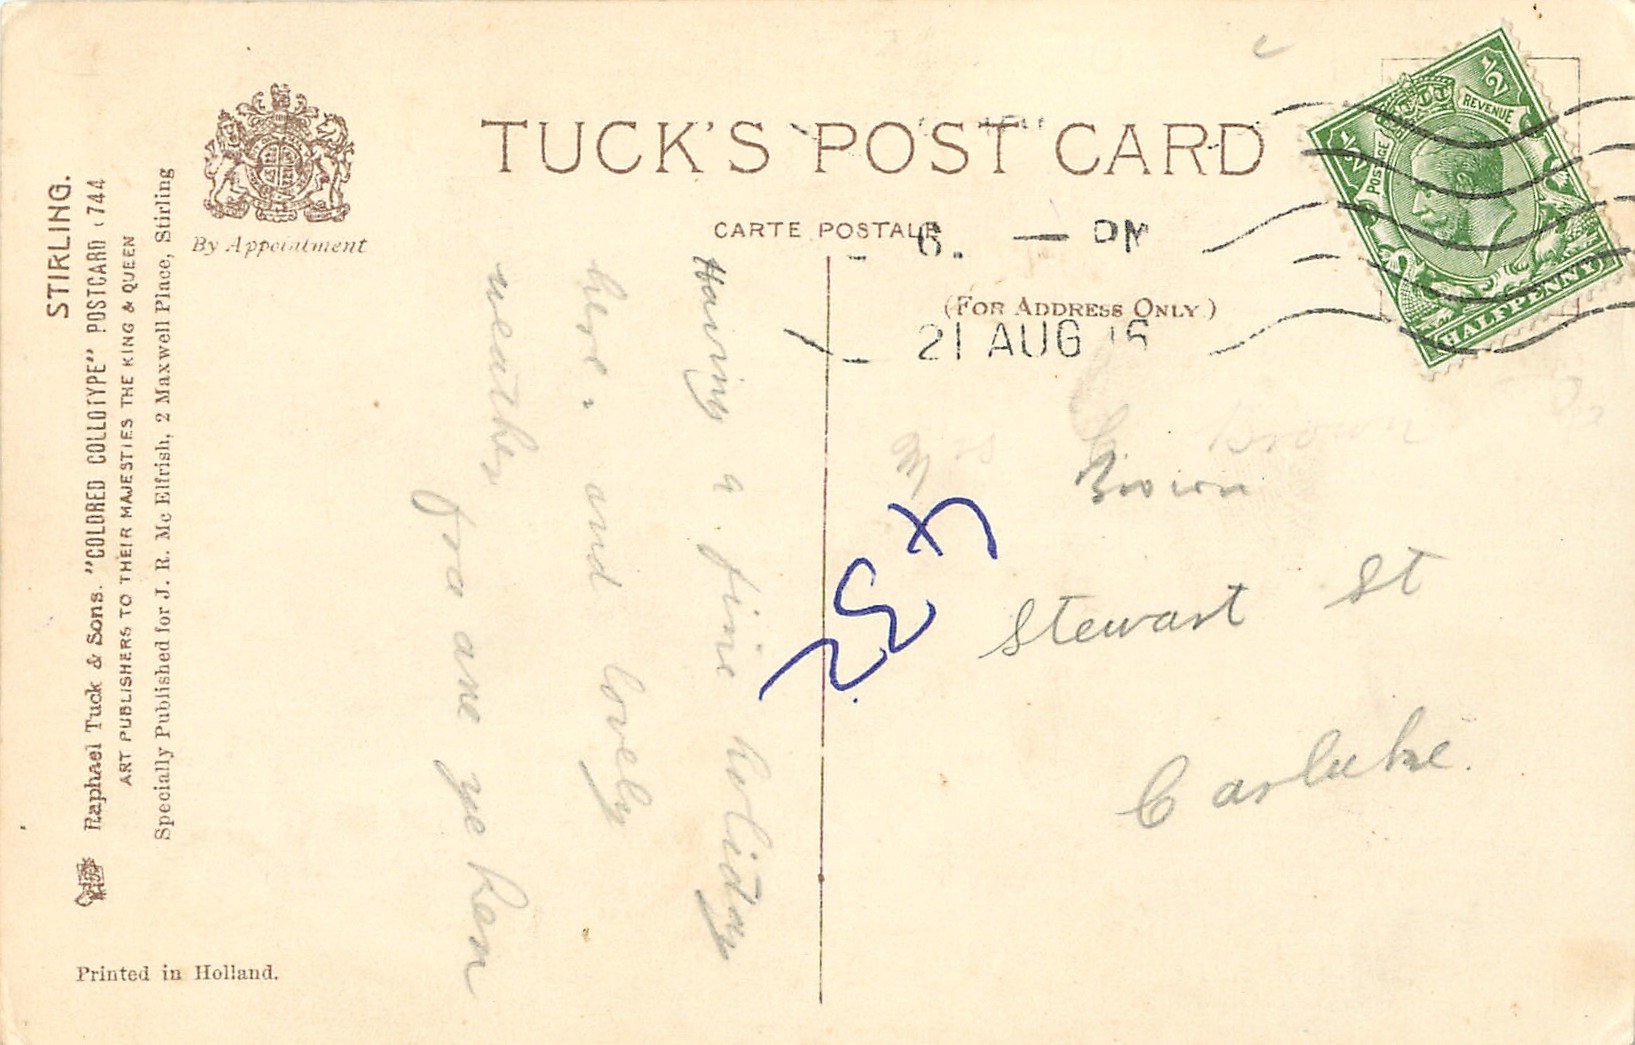 TUCK'S POST CARD
CARTE POSTALE
(FOR ADDRESS ONLY)
By Appointment
STIRLING.
Raphael Tuck & Sons. "COLORED COLLOTYPE" POSTCARD 744
ART PUBLISHERS TO THEIR MAJESTIES THE KING & QUEEN
Specially Published for J. R. Mc Elfrish, 2 Maxwell Place, Stirling
Printed in Holland.
POSTAGE REVENUE
1/2 1/2
HALFPENNY
6. — PM
21 AUG 16
Having a fine holiday
here. and lovely
weather
fra ane ye ken
Brown
Brown
Stewart St
Carluke.